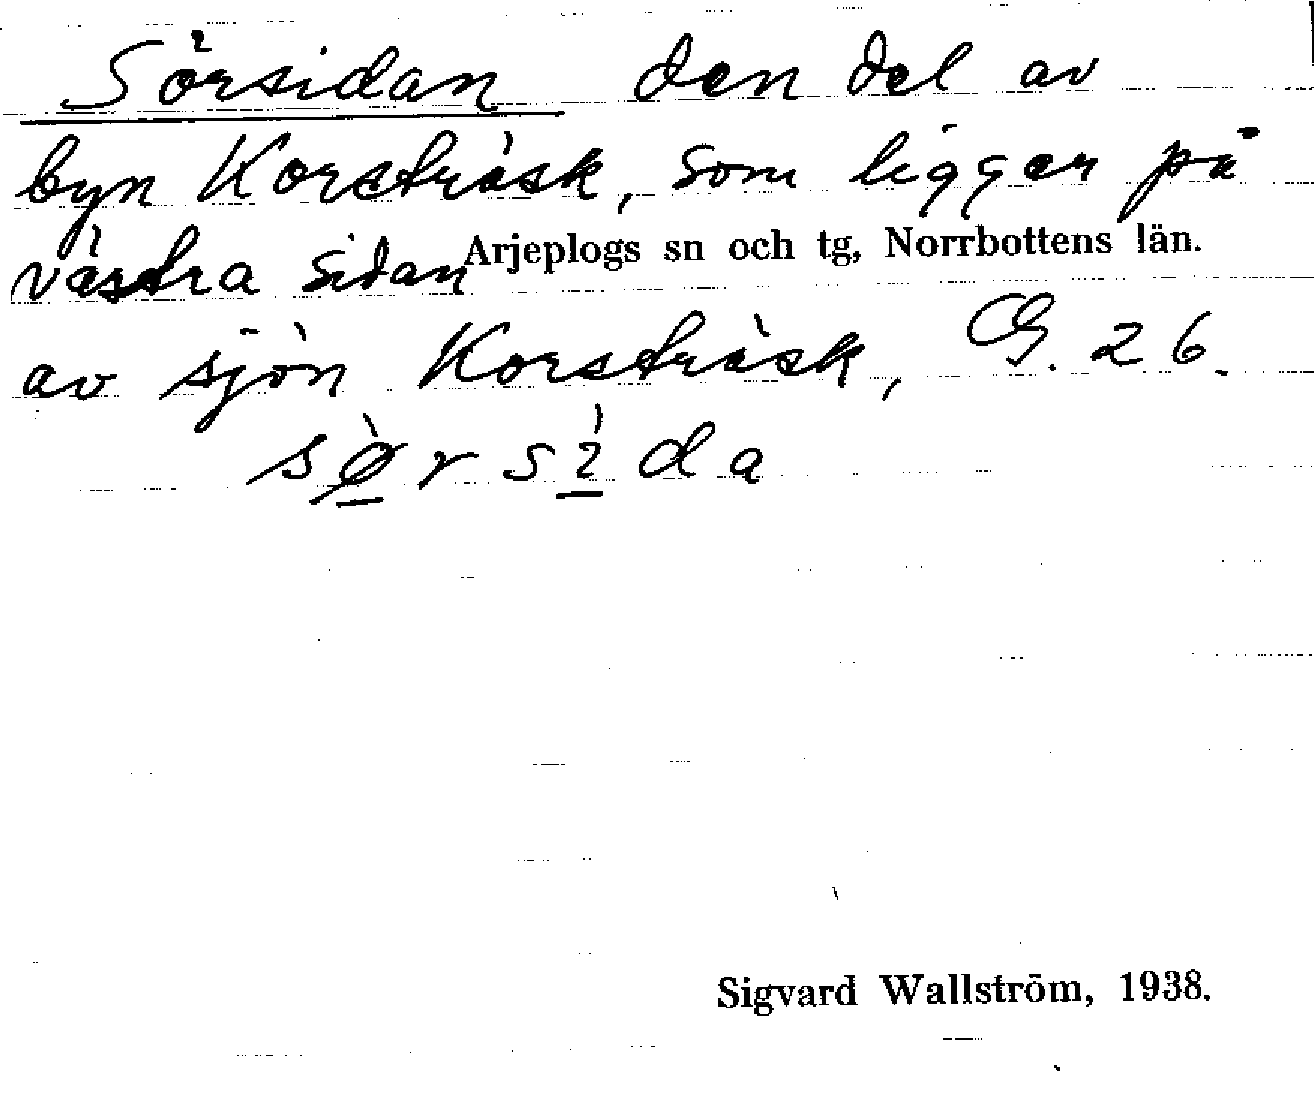 Sörsidan den del av
byn Korsträsk, som ligger på
Arjeplogs sn och tg, Norrbottens län.
västra sidan
av sjön Korsträsk, G. 26.
sø̀rsìda
Sigvard Wallström, 1938.